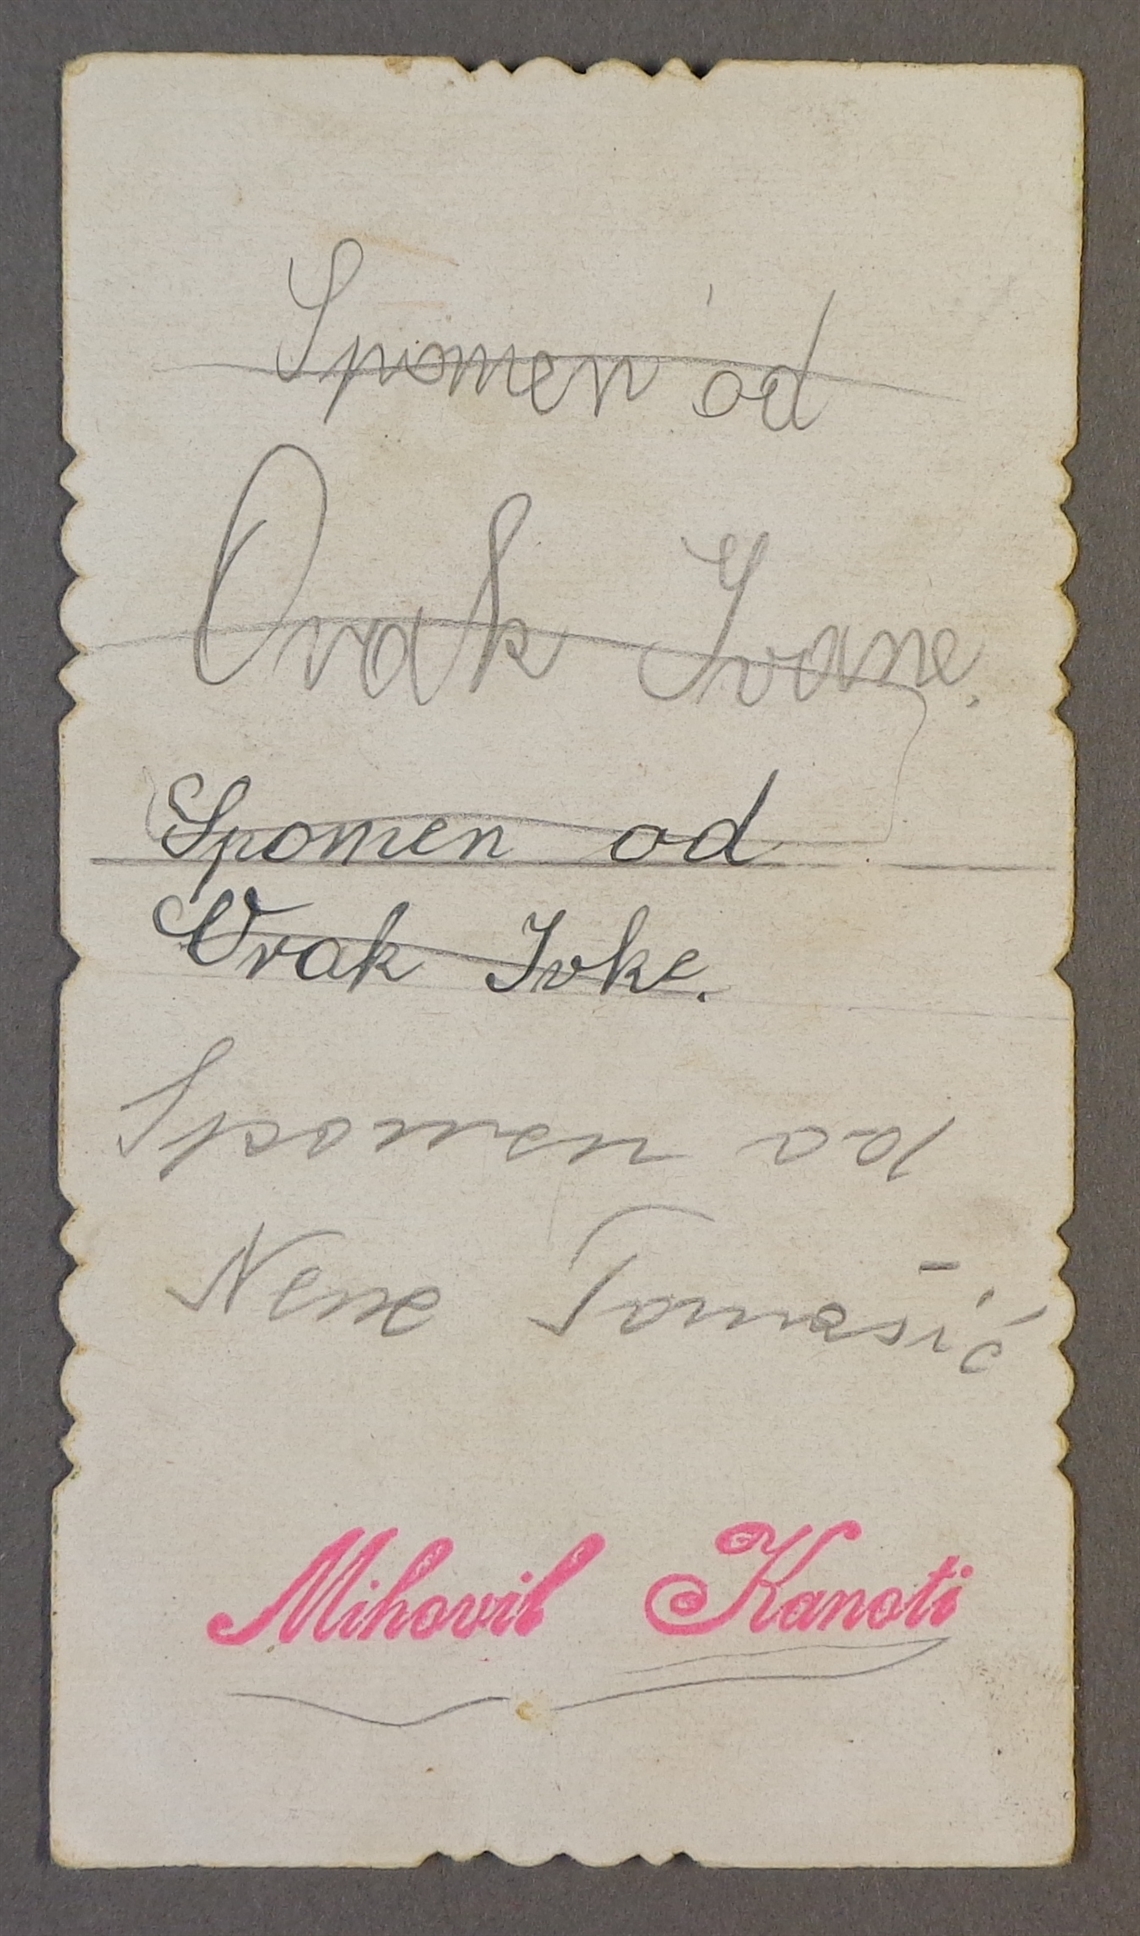 Spomen od
Orak Ivane.
Spomen od
Orak Ivke.
Spomen od
Nene Tomašić
Mihovil Kanoti